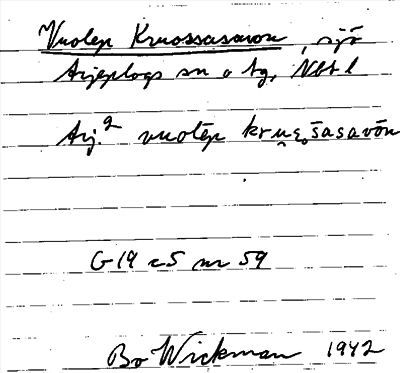 Vuolep Kruossasavon, sjö
Arjeplogs sn o tg, Nbt l
Arj.2 vuolēp kru̯e̮šasavōn
G 19 c5 nr 59
Bo Wickman 1942